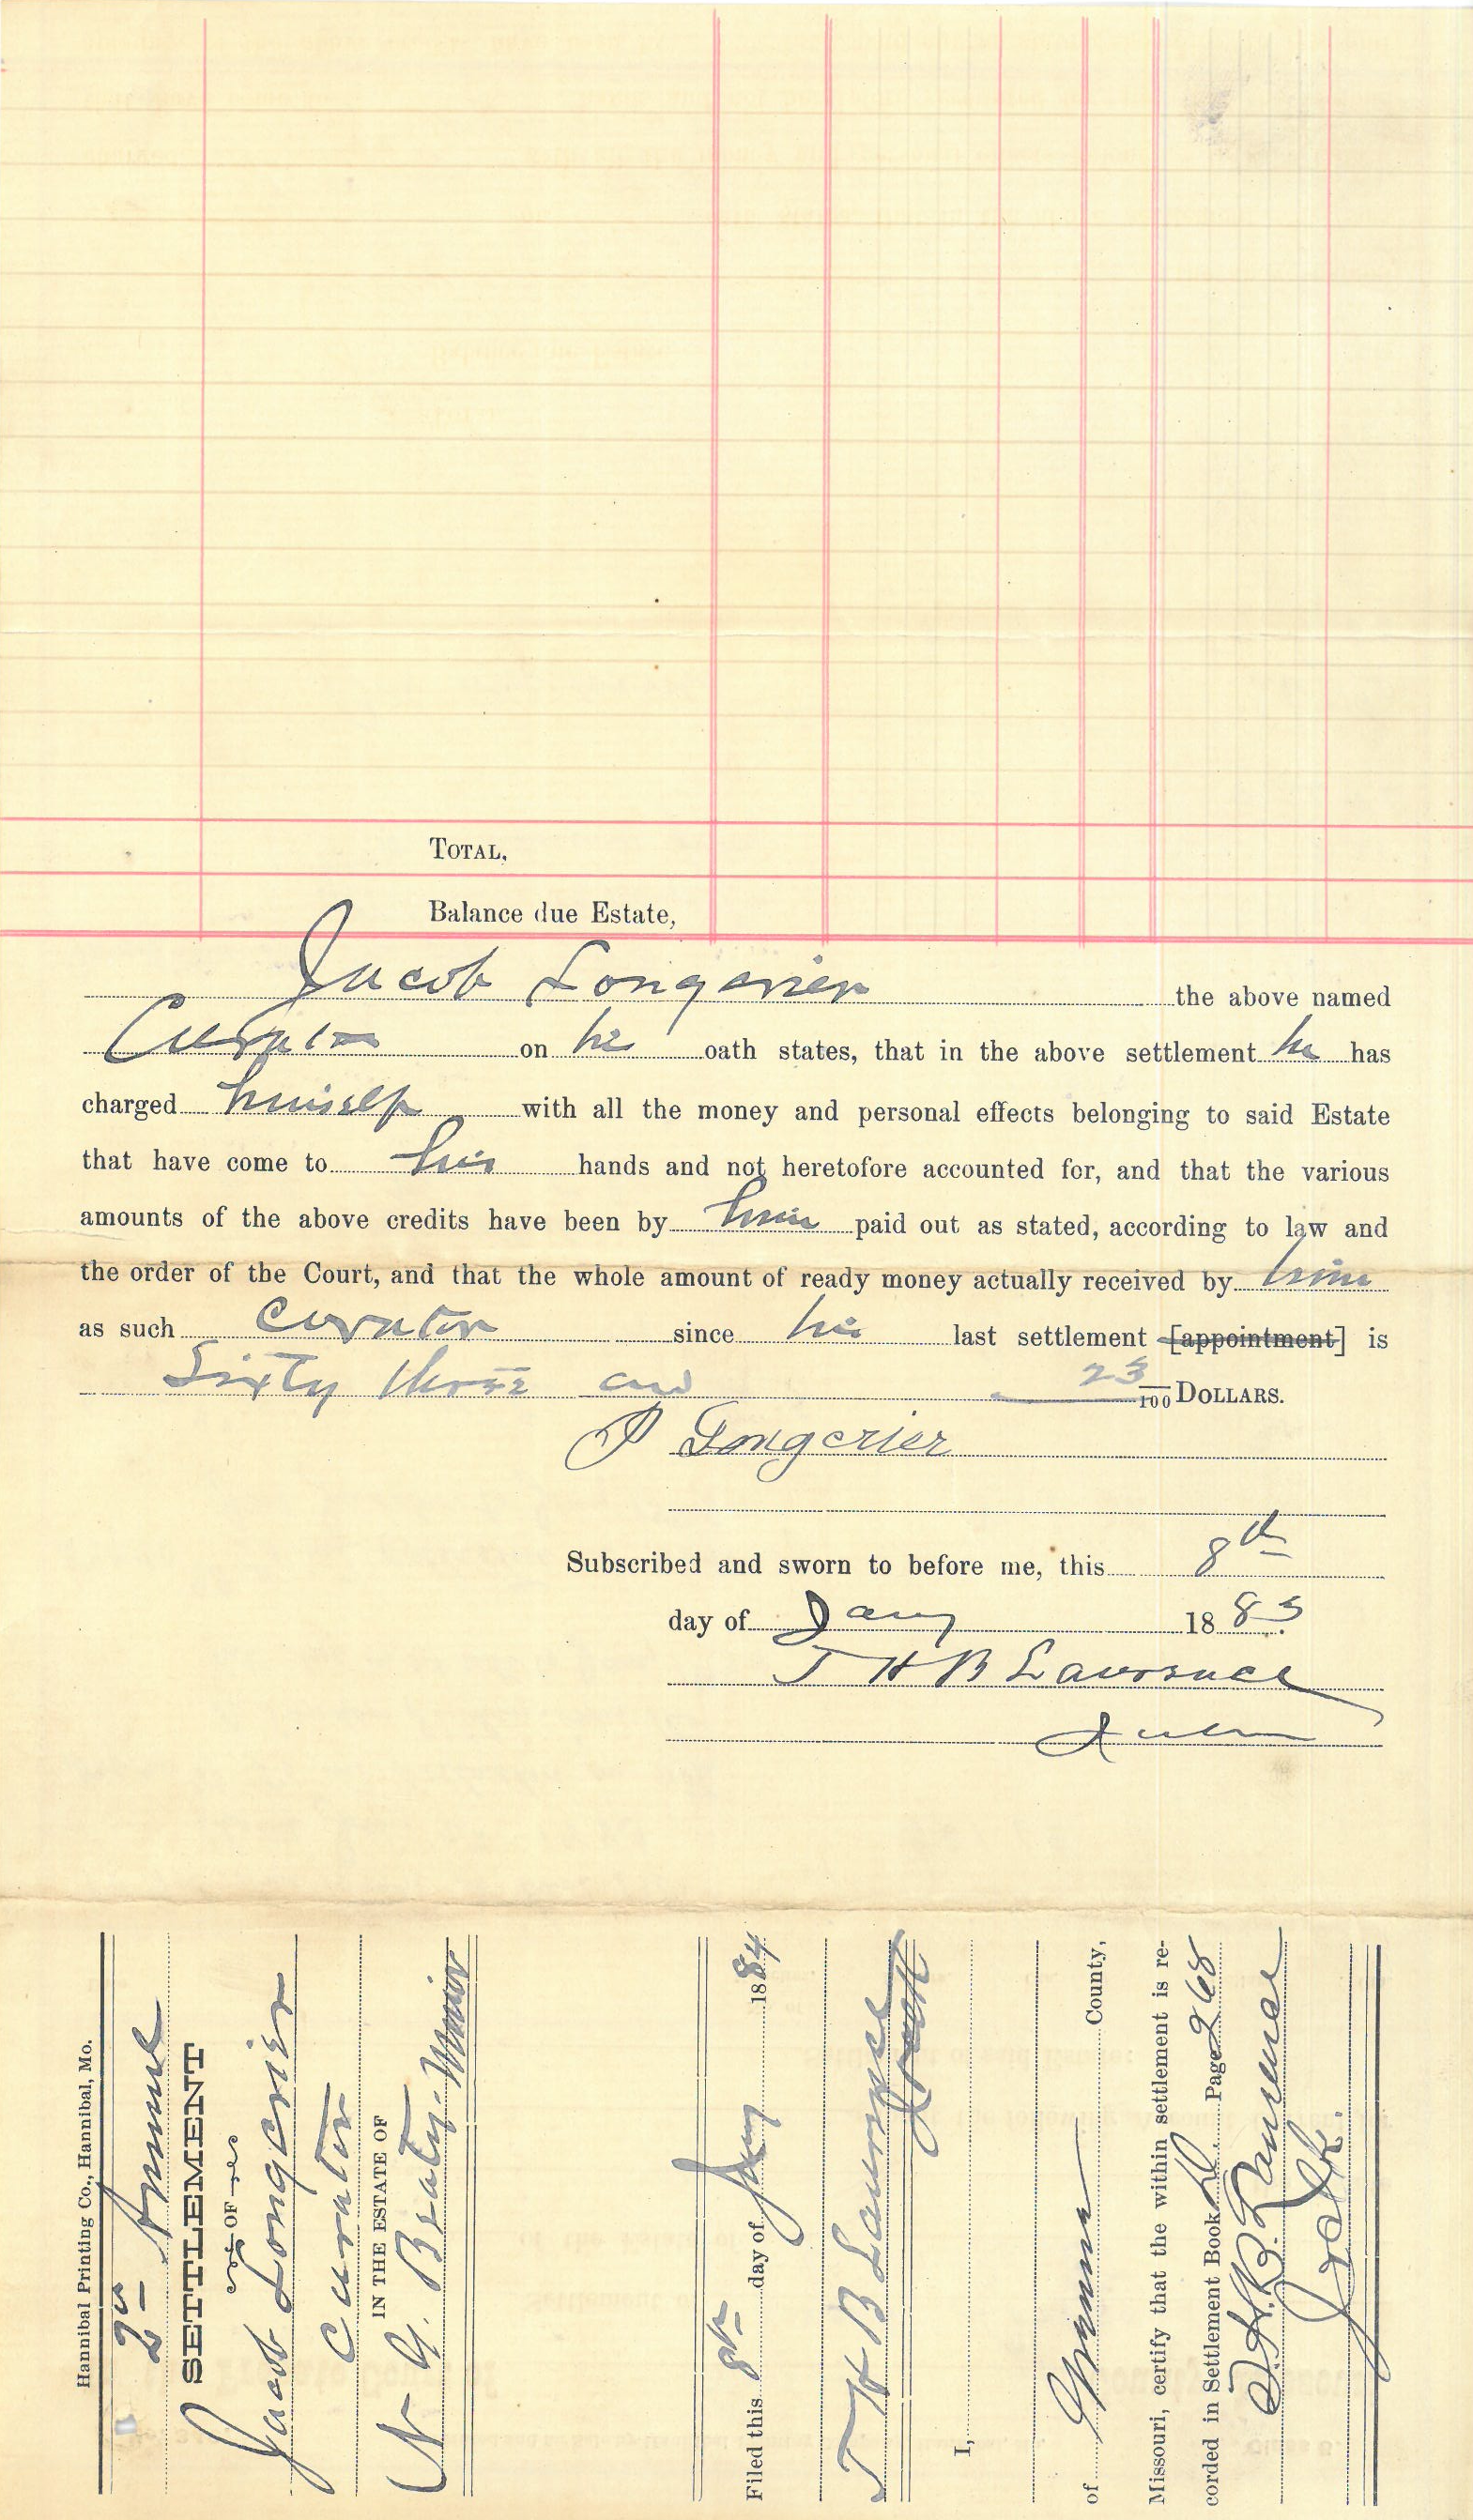 TOTAL,
Balance due Estate,
Jacob Longerier the above named
Curator on his oath states, that in the above settlement he has
charged himself with all the money and personal effects belonging to said Estate
that have come to his hands and not heretofore accounted for, and that the various
amounts of the above credits have been by him paid out as stated, according to law and
the order of the Court, and that the whole amount of ready money actually received by him
as such Curator since his last settlement [appointment] is
Sixty three and 23/100 DOLLARS.
J Longerier
Subscribed and sworn to before me, this 8th
day of Jany 1883
T H B Lawrence
Hannibal Printing Co., Hannibal, Mo.
2n Annul
SETTLEMENT
OF
Jacob Longerier
Curator
IN THE ESTATE OF
N G. Beaty Minor
Filed this 8th day of Jany 1884
T H B Lawrence
I,
of County,
Missouri, certify that the within settlement is re-
corded in Settlement Book D Page 268
T.H.B. Lawrence